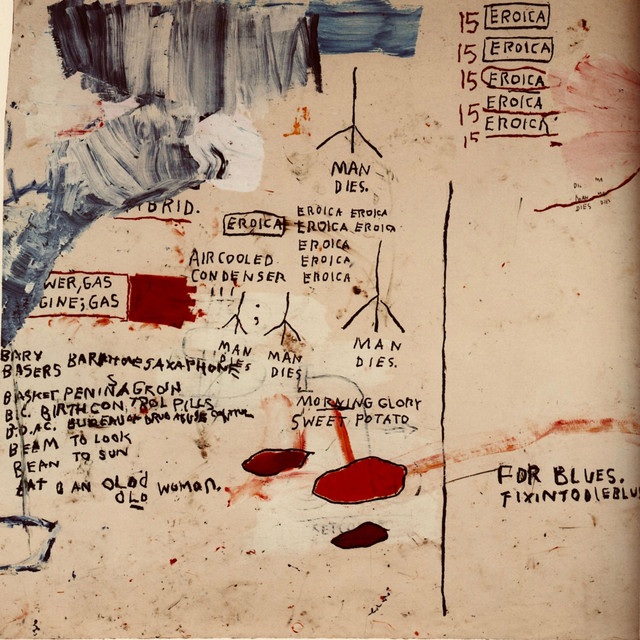 15 EROICA
15 EROICA
15 EROICA
15 EROICA
15 EROICA
MAN
DIES.
MAN
DIES
BRID.
EROICA
EROICA EROICA
EROICA EROICA
EROICA
EROICA
EROICA
AIR COOLED
CONDENSER
WER, GAS
GINE; GAS
;
MAN
DIES
MAN
DIES
MAN
DIES.
BARY
BASERS BARITONE SAXAPHONE
BASKET PENINAGRON
B.C. BIRTHCONTROL PILLS
B.D.A.C. BUREAU OF DRUG ABUSE
BEAM TO LOOK
BEAN TO SUN
BAT AN OLOD WOMAN.
OLD
MORNING GLORY
SWEET POTATO
FOR BLUES.
FIXINTODIEBLU